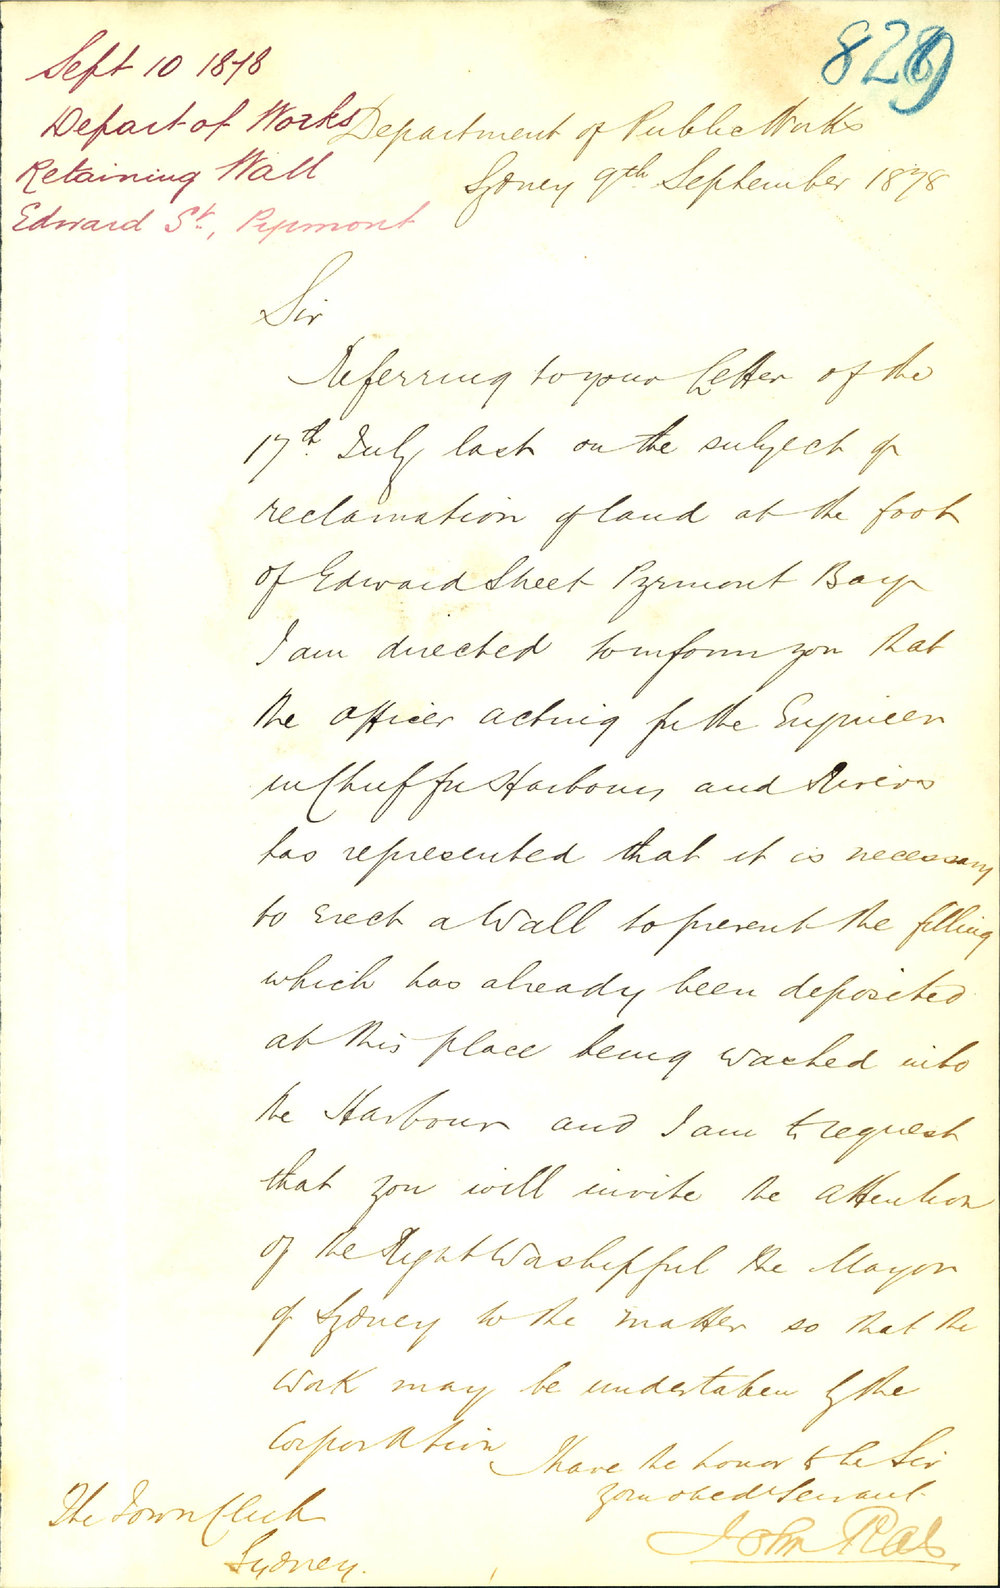 829
Sept 10 1878
Depart of Works
Retaining Wall
Edward St., Pyrmont
Department of Public Works
Sydney 9th September 1878
Sir
Referring to your letter of the
17th July last on the subject of
reclamation of land at the foot
of Edward Street Pyrmont Bay
I am directed to inform you that
the officer acting for the Engineer
in Chief for Harbours and Rivers
has represented that it is necessary
to erect a Wall to prevent the filling
which has already been deposited
at this place being washed into
the Harbour and I am to request
that you will invite the attention
of the Right Worshipful the Mayor
of Sydney to the matter so that the
work may be undertaken by the
Corporation
I have the honor to be Sir
your obedt Servant
John Rae
The Town Clerk
Sydney.